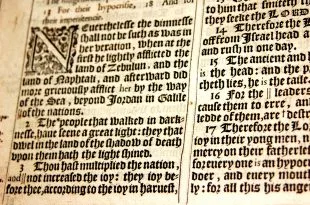 13 For their hypocrisie, 18 And for
their impenitencie.
NEverthelesse the dimnesse
shall not be such as was in
her veration, when at the
first he lightly afflicted the
land of Zebulun, and the
land of Naphtali, and afterward did
more grieuously afflict her by the way
of the Sea, beyond Jordan in Galile
of the nations.
2 The people that walked in dark-
nesse, haue seene a great light: they that
dwel in the land of the shadow of death
vpon them hath the light shined.
3 Thou hast multiplied the nation,
and not increased the ioy: they ioy be-
fore thee, according to the ioy in haruest,
to him that smiteth th
they seeke the LORD
14 Therefore the L
off from Israel head a
and rush in one day.
15 The ancient and
is the head: and the p
cheth lies, he is the taile.
16 For the leaders
cause them to erre, and
ledde of them, are destr
17 Therefore the Lo
ioy in their yong men, n
mercy on their fatherle
for euery one is an hypoc
doer, and euery mout
ly: for all this his anger